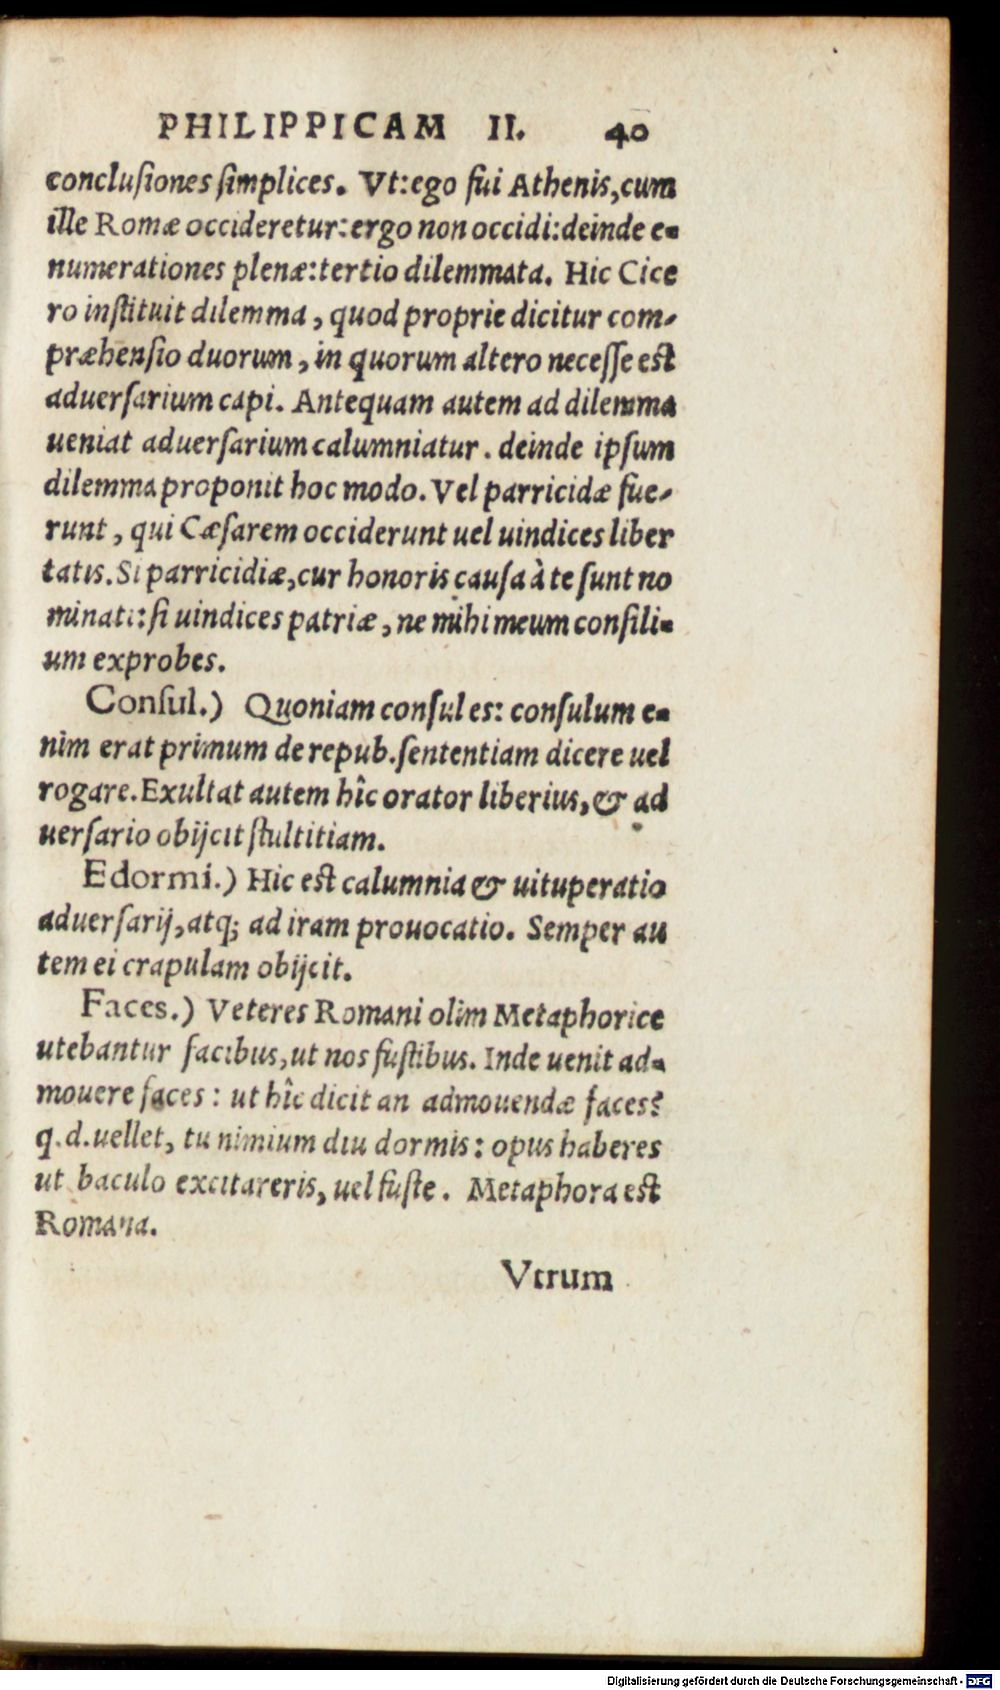 PHILIPPICAM II. 40
concluſiones ſimplices. Vt: ego fui Athenis, cum
ille Romæ occideretur: ergo non occidi: deinde e-
numerationes plenæ: tertio dilemmata. Hic Cice
ro inſtituit dilemma, quod proprie dicitur com-
præhenſio duorum, in quorum altero neceſſe eſt
aduerſarium capi. Antequam autem ad dilemma
ueniat aduerſarium calumniatur. deinde ipſum
dilemma proponit hoc modo. Vel parricidæ fue-
runt, qui Cæſarem occiderunt uel uindices liber
tatis. Si parricidiæ, cur honoris cauſa à te ſunt no
minati: ſi uindices patriæ, ne mihi meum conſili-
um exprobes.
Conſul.) Quoniam conſul es: conſulum e-
nim erat primum de repub. ſententiam dicere uel
rogare. Exultat autem hîc orator liberius, & ad
uerſario obijcit ſtultitiam.
Edormi.) Hic eſt calumnia & uituperatio
aduerſarij, atq; ad iram prouocatio. Semper au
tem ei crapulam obijcit.
Faces.) Veteres Romani olim Metaphorice
utebantur facibus, ut nos fuſtibus. Inde uenit ad-
mouere faces: ut hîc dicit an admouendæ faces?
q. d. uellet, tu nimium diu dormis: opus haberes
ut baculo excitareris, uel fuſte. Metaphora eſt
Romana.
Vtrum
Digitalisierung gefördert durch die Deutsche Forschungsgemeinschaft - DFG